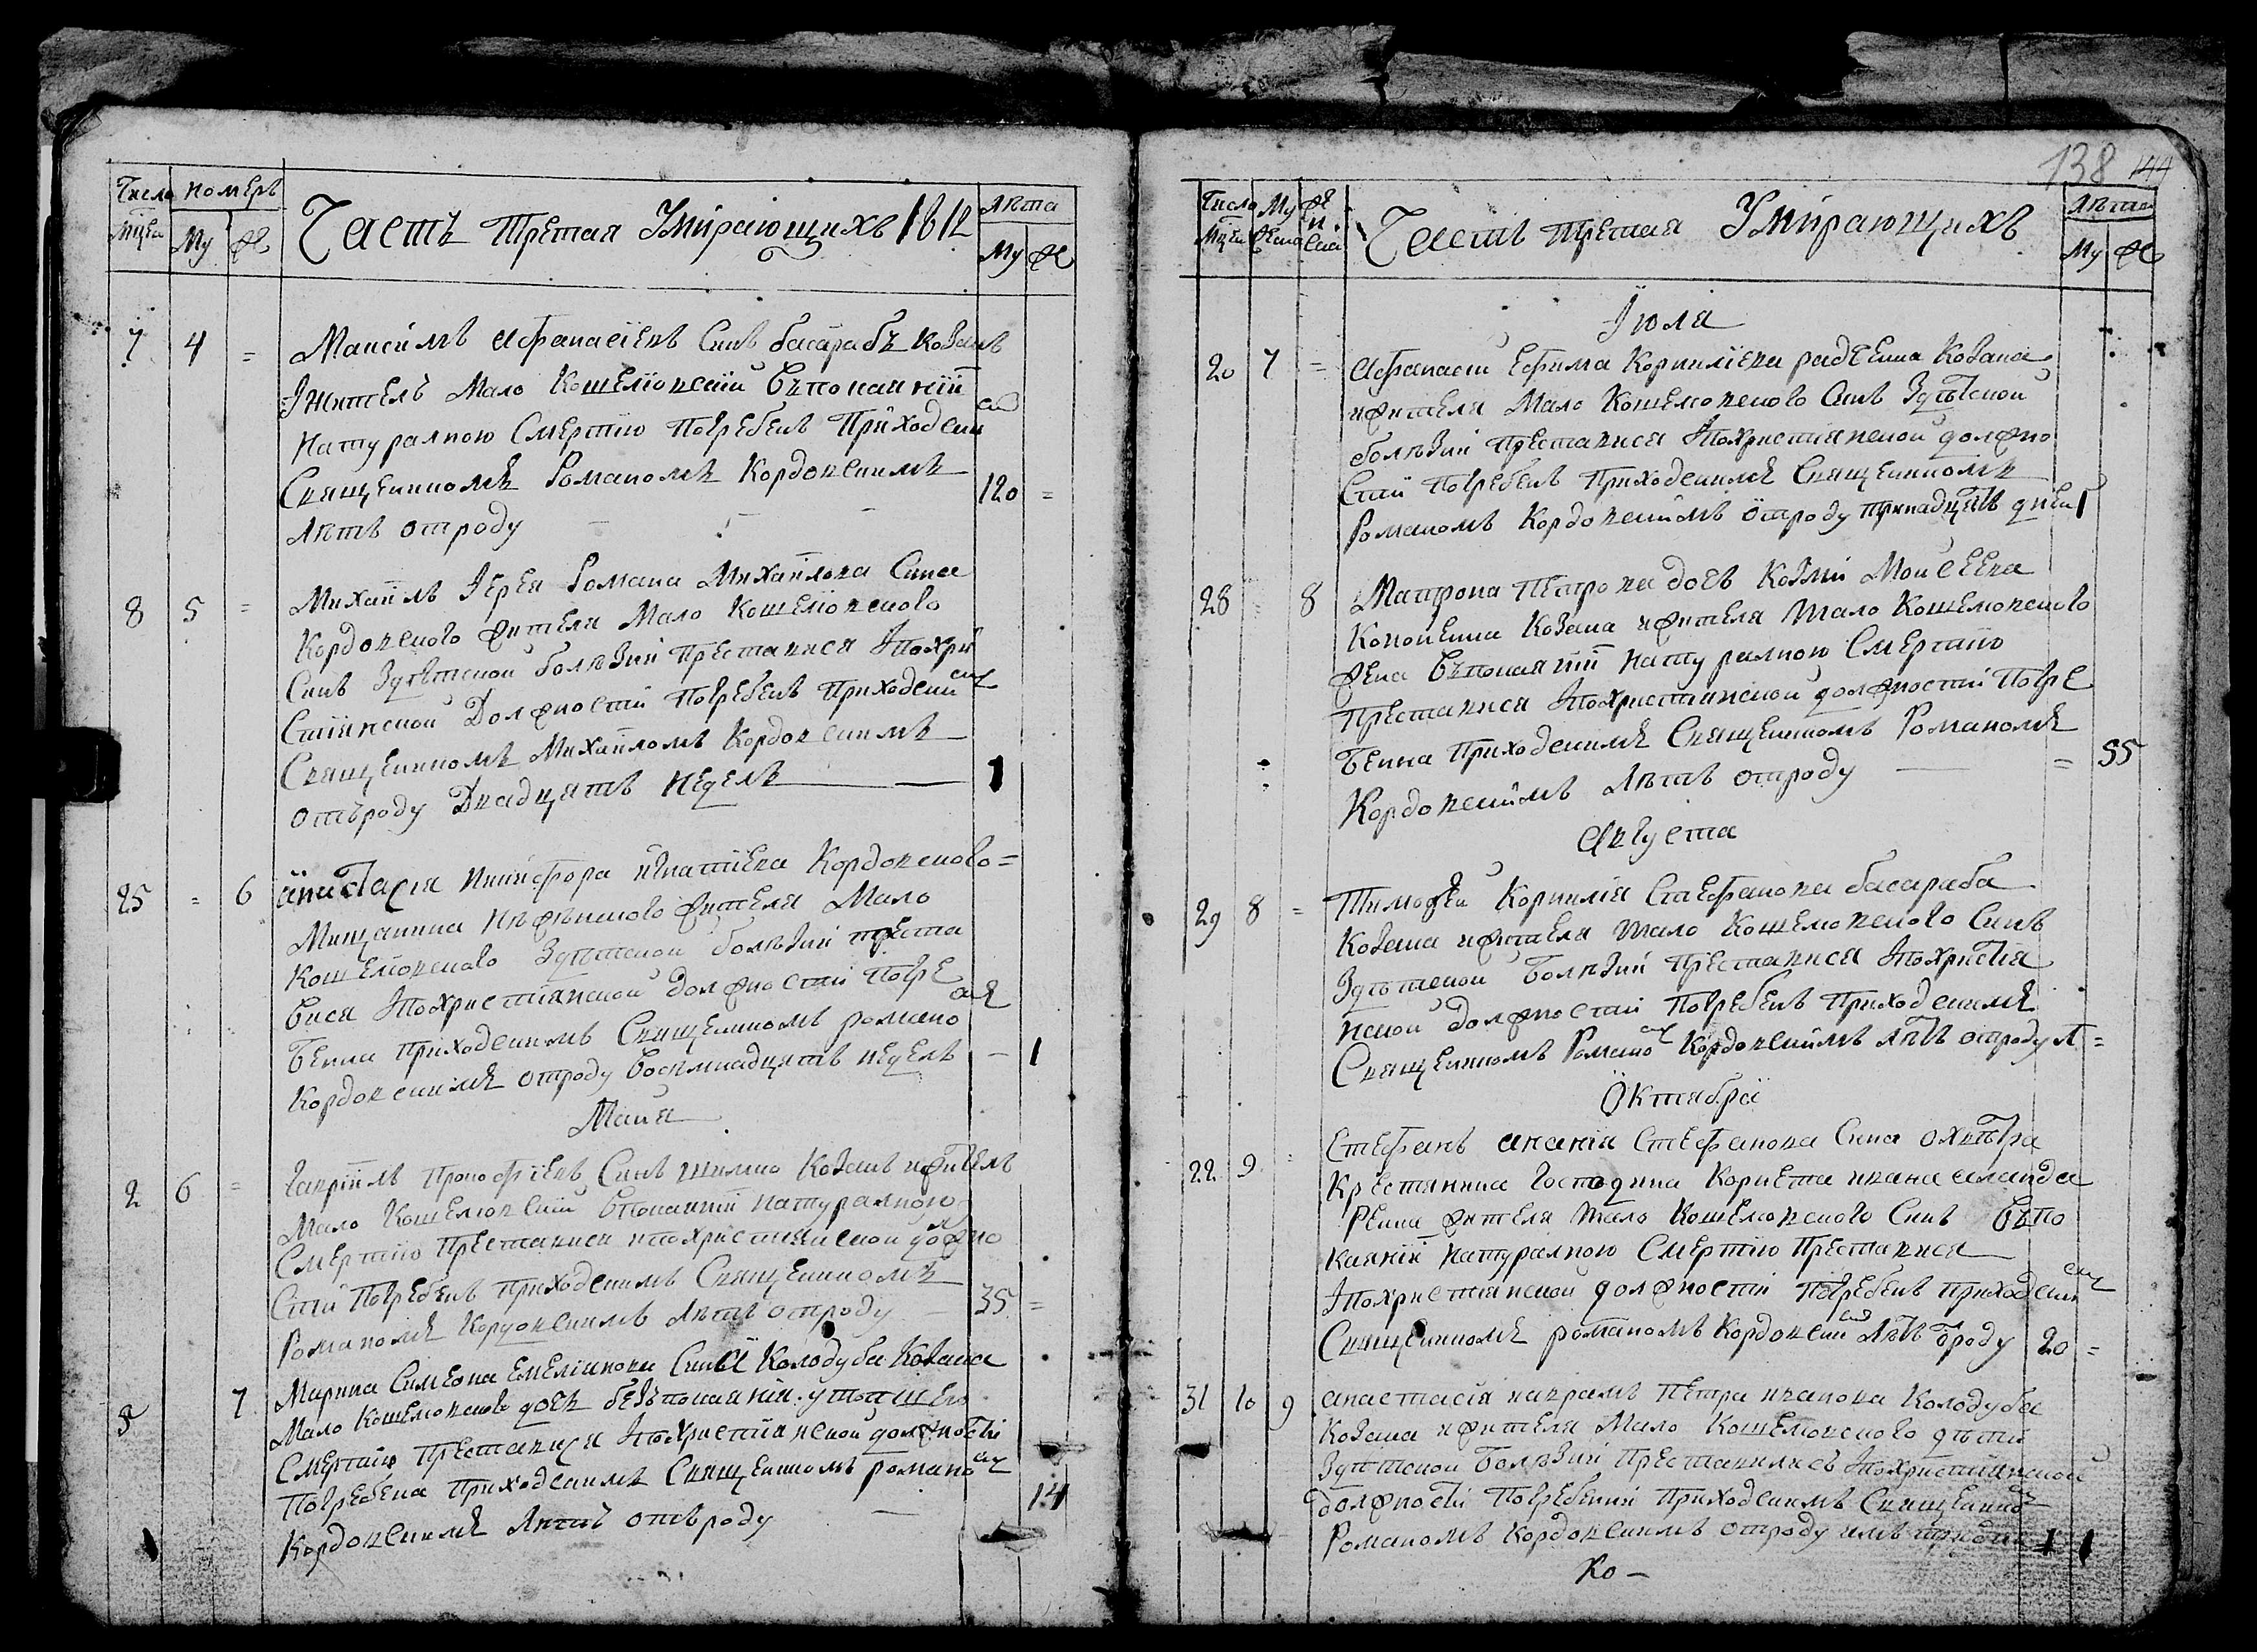 Число номеръ
Мцеи Му Же
Часть третая Умирающихъ 1812
Лѣта
Му Же
7 4 = Максимъ Афанасіевъ Синъ басарабъ Козакъ
Iжитель Мало Кошелювскій Въпокаяніи
Натуралною Смертию Погребенъ Приходским
Священникомъ Романомъ Кордовскимъ 120 =
Лѣтъ отроду
8 5 = Михаилъ Iерея Романа Михайлова Сина
Кордовского жителя Мало Кошелювского
Синъ Здѣтской болѣзни Преставися Iпохри
Стиянской Должности Погребенъ Приходским
Священникомъ Михайломъ Кордовскимъ
отъроду Двадцять Недель 1
25 = 6 анастасія Никифора игнатіева Кордовского =
Мищанина Нѣжѣнского жителя Мало
Кошелювского Здѣтской болѣзни преста
вися Iпохристіянской должности Погре
бенна Приходскимъ Священникомъ романо
Кордовскимъ отроду Восемнадцять недель - 1
Маия
2 6 = Гавріилъ Прокофіевъ Синъ Козакъ ижитель
Мало Кошелювский Впокаяніи натуралною
Смертию Преставися ипохристиянской должно
Сти Погребенъ Приходскимъ Священникомъ
Романомъ Кордовскимъ Лѣтъ отроду 35 =
5 7 Марина Симеона Емелианова Сина Колодуба Козака
Мало Кошелювского дочь безъпокаянія
Смертию Преставися Iпохристіянской должности
Погребена Приходскимъ Священникомъ романо
Кордовскимъ Лѣтъ отъроду 14
138 144
Число Му Же
Мцеи
Часть третая Умирающихъ
Лѣта
Му Же
Iюля
20 7 = Афанасій Ефима Корнилиева радченка Козака
ижителя Мало Кошелювского Синъ Здѣтской
болѣзни преставися Iпохристиянской должно
Сти Погребенъ Приходскимъ Священникомъ
Романомъ Кордовскимъ отроду тринадцять дней 1
28 8 Матрона Петрова дочь Козми Моисеева
Кононенка Козака ижителя Мало Кошелювского
жена Въпокаяніи Натуралною Смертию
Преставися Iпохристиянской должности Погре
бенна Приходскимъ Священникомъ Романомъ
Кордовскимъ Лѣтъ отроду = 55
Августа
29 8 = Тимофей Корнилія Стефанова басараба
Козака ижителя Мало Кошелювского Синъ
Здѣтской Болѣзни Преставися Iпохристія
нской должности Погребенъ Приходскимъ
Священникомъ Романо Кордовскимъ Лѣтъ отроду =
Октябрӥ
22 9 = Стефанъ ананія Стефанова Сина
Крестянина Господина Корнета ивана
жителя Мало Кошелювского Синъ Въпо
каяніи Натуралною Смертію Преставися
Iпохристіянской должности Погребенъ приходским
Священникомъ романомъ Кордовским Лѣтъ ороду 20 =
31 10 9 анастасія иаврамъ Петра иванова Колодуба
Козака ижителя Мало Кошелювского дѣти
Здѣтской Болѣзни Преставилисъ Iпохристиянской
должности Погребенни Приходскимъ Священни
Романомъ Кордовскимъ отроду 1 1
Ко -